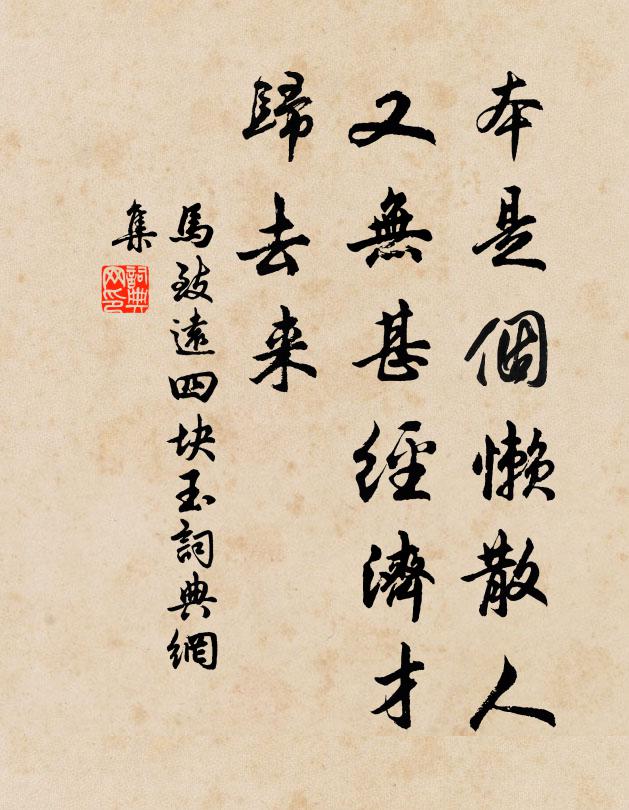 本是個懶散人
又無甚經濟才
歸去来
馬致遠四块玉詞典網
集
詞典
网印